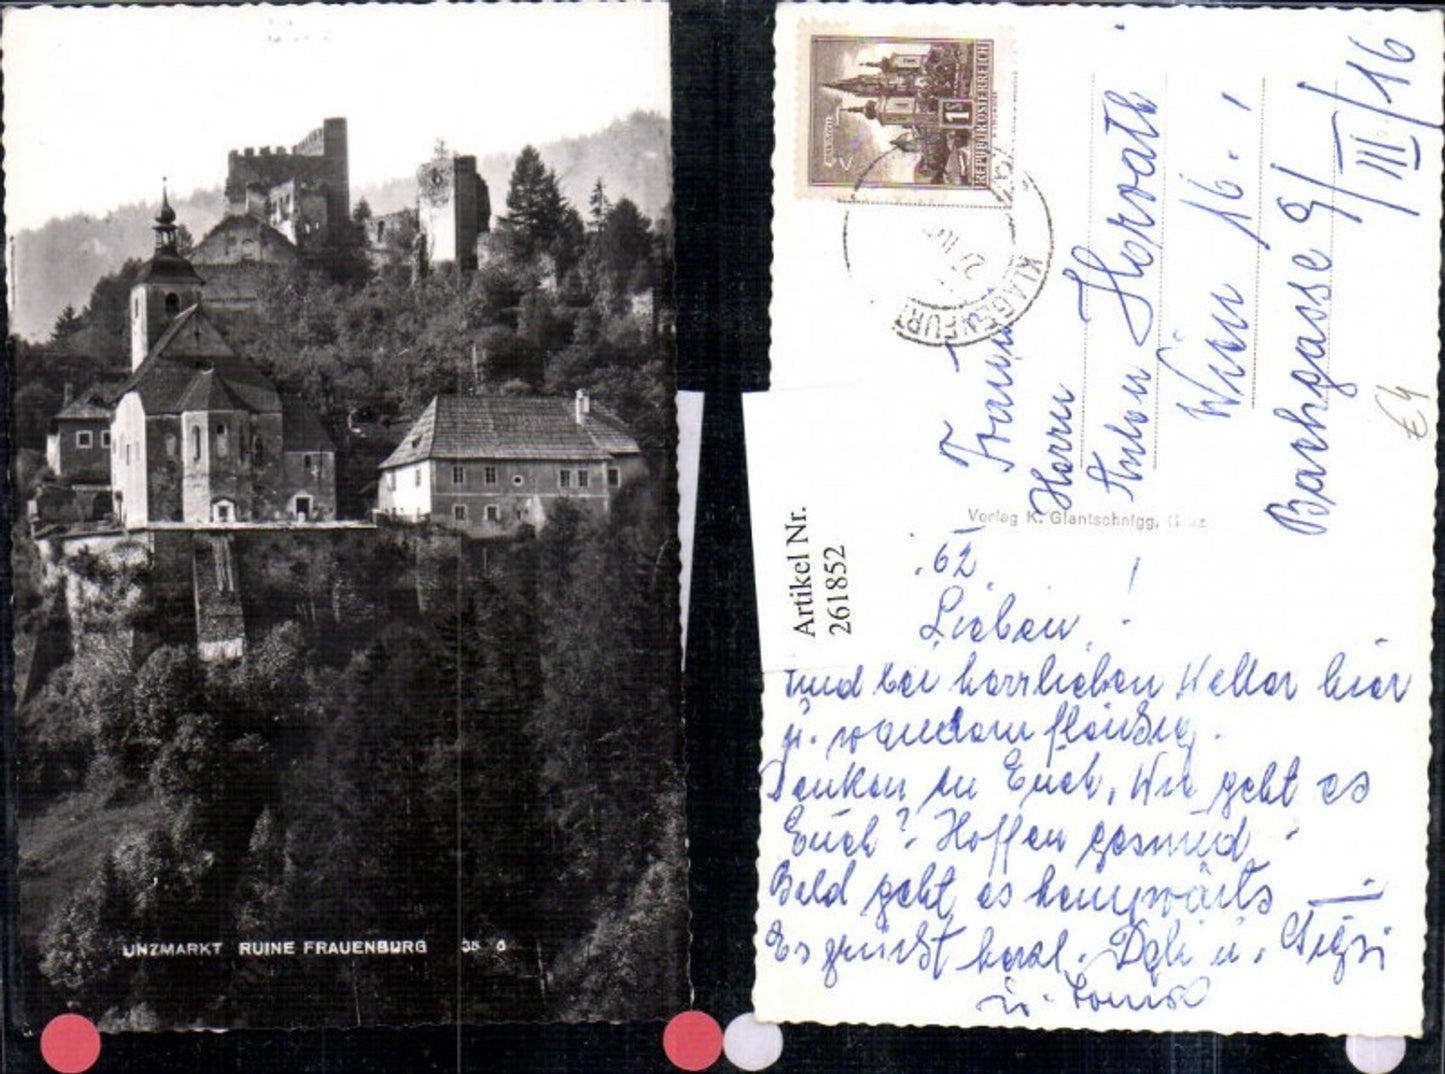 UNZMARKT RUINE FRAUENBURG
REPUBLIK ÖSTERREICH
1S
KLAGENFURT
Herrn
Anton Horvath
Wien 16.,
Bachgasse 9/III/16
€4
Verlag K. Glantschnigg,
Artikel Nr.
2618 52
62
Lieben!
sind bei herrlichem Wetter hier
u. wandern fleißig.
Denken an Euch. Wie geht es
Euch? Hoffen gesund.
Bald geht es heimwärts
Es grüßt herzl.